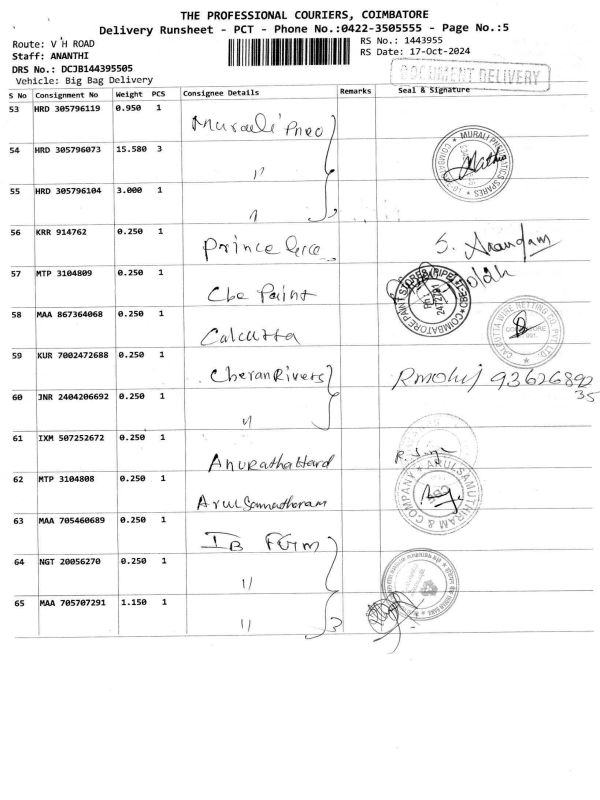 THE PROFESSIONAL COURIERS, COIMBATORE
Delivery Runsheet - PCT - Phone No.:0422-3505555 - Page No.:5
Route: V H ROAD
RS No.: 1443955
Staff: ANANTHI
RS Date: 17-Oct-2024
DRS No.: DCJB144395505
DOCUMENT DELIVERY
Vehicle: Big Bag Delivery
S No Consignment No Weight PCS Consignee Details Remarks Seal & Signature
53 HRD 305796119 0.950 1 Murali Pneo
54 HRD 305796073 15.580 3 " MURALI PNEUMATICS SPARES
55 HRD 305796104 3.000 1 "
56 KRR 914762 0.250 1 Prince S. Anandam
57 MTP 3104809 0.250 1 Cbe Paint COIMBATORE PAINT STORES
58 MAA 867364068 0.250 1 Calcutta CALCUTTA WIRE NETTING CO. PVT. LTD.
59 KUR 7002472688 0.250 1 Cheran Rivers 9362689235
60 JNR 2404206692 0.250 1 "
61 IXM 507252672 0.250 1 Anuratha Hard
62 MTP 3104808 0.250 1 ARULSAMUTHIRAM & COMPANY
63 MAA 705460689 0.250 1 IB
64 NGT 20056270 0.250 1 "
65 MAA 705707291 1.150 1 " 3